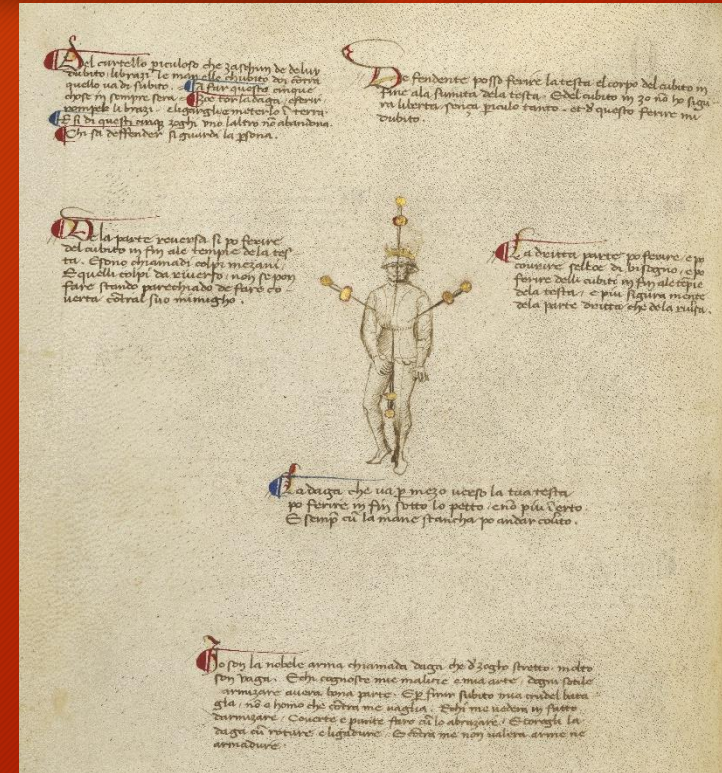 Del cortello piculoso che zaschun de dubitar
dubito. li brazi. le man elle chubito doi contra
quello va di subito. La far questo cinque
chose in sempre sera. Zoe tor la daga, e ferir
rompeli li brazi. e ligargli e meterlo in terra.
E si di questi cinque zoghi uno laltro non abandona.
Chi sa deffender si guardi la psona.
De fendente posso ferire la testa el corpo del cubito in
fine ala sumita dela testa. E del cubito in zo no ho sigu
ra liberta senza piculo tanto. et d questo ferire mi
dubito.
De la parte reversa si po ferire
del cubito in fin ale tempie dela tes
ta. E sono chiamadi colpi mezani.
E quelli colpi da riverso. non se pon
fare stando parechiado de fare co
verta contra lo suo inimigho.
La dritta parte po ferire, e po
covrire se l toe di bisogno, e po
ferire delli cubiti in fin ale tempie
dela testa, e piu sigura mente
dela parte dritta che dela riversa.
La daga che va p mezo verso la tua testa
po ferire in fin sotto lo petto, e no piu in erto.
E semp cu la mane stancha po andar coverto.
Io son la nobele arma chiamada daga che d zogho stretto molto
son vaga. E chi cognosce mie malicie e mia arte, degni sotile
armizare avera bona parte. E p finir subito mia crudel bata
glia, no e homo che contra me vaglia. E chi me vedera in fatto
darmizare. Coverte e punte faro cu lo abrazare. E torogli la
daga cu roture e ligadure. E contra me non valera arme ne
armadure.